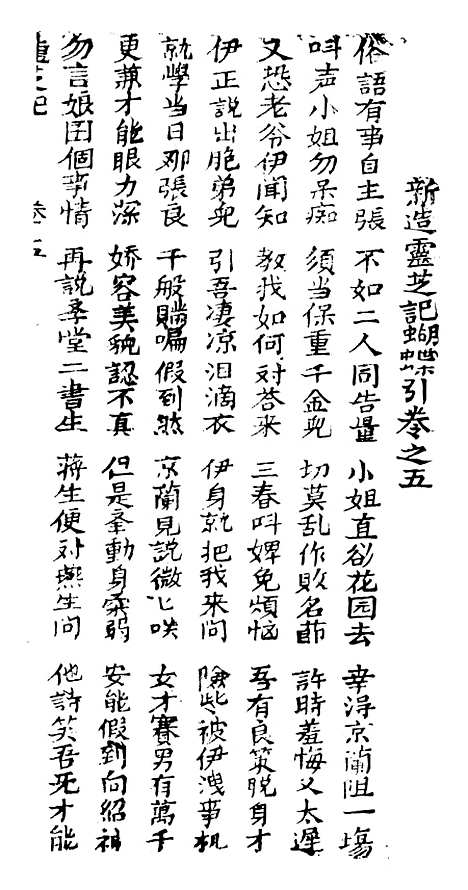 新造靈芝記蝴蝶引卷之五
俗語有事自主張 不如二人同告量 小姐直欲花园去 幸淂京蘭阻一塲
叫声小姐勿呆痴 須当保重千金兒 切莫乱作敗名節 許時羞悔又太遲
又恐老爷伊聞知 教我如何对答来 三春叫婢免煩恼 吾有良策脱身才
伊正説出胞弟兒 引吾凄凉泪滴衣 伊身就把我来问 險些被伊洩事机
就學当日那張良 千般瞞騙假到然 京蘭見説微匕咲 女才賽男有萬千
更兼才能眼力深 娇容美貌認不真 但是举動身柔弱 安能假到向紹裙
勿言娘囝個事情 再說孝堂二書生 蒋生便对燕生问 他詩笑吾死才能
靈芝記 卷五